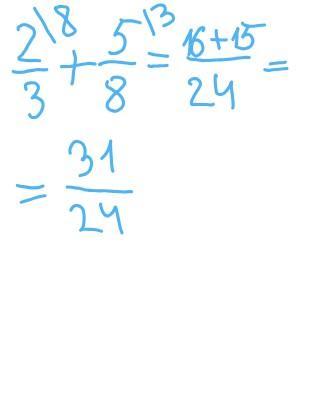 2\8/3 + 5\3/8 = 16+15/24 =
= 31/24